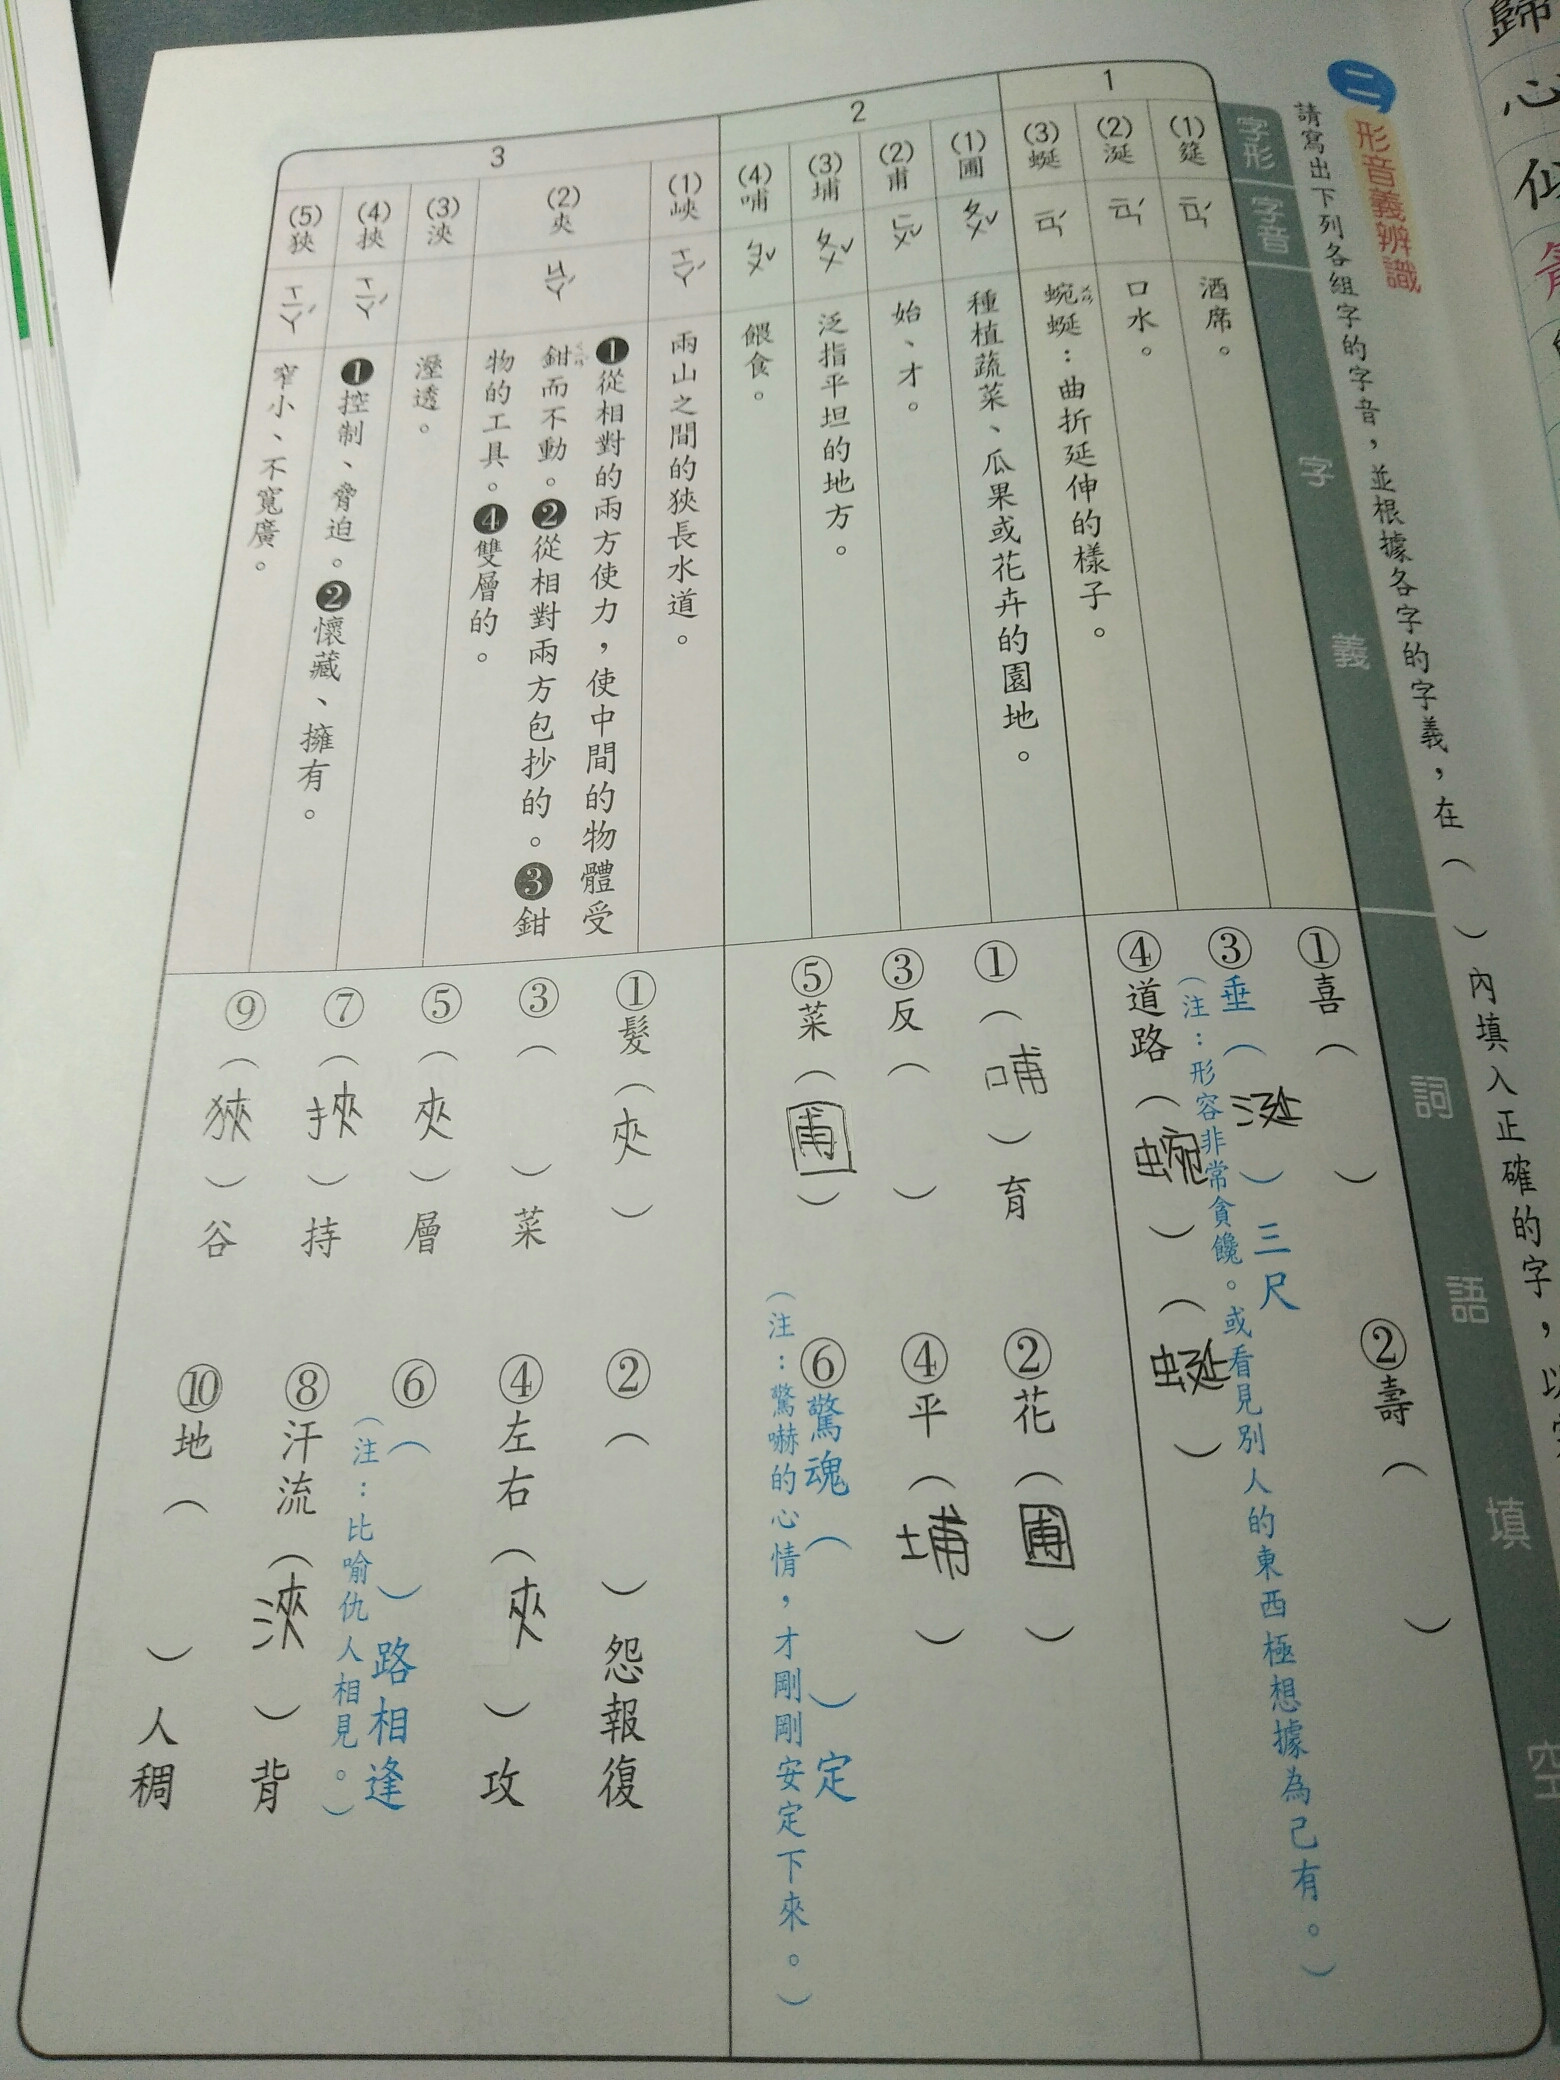 歸心似
二 形音義辨識
請寫出下列各組字的字音，並根據各字的字義，在（　）內填入正確的字，以
字形 字音 字義 詞語填空
1
(1)筵 ㄧㄢˊ 酒席。
(2)涎 ㄒㄧㄢˊ 口水。
(3)蜒 ㄧㄢˊ 蜿蜒：曲折延伸的樣子。
①喜（　）
②壽（　）
③垂（涎）三尺
（注：形容非常貪饞。或看見別人的東西極想據為己有。）
④道路（蜿）（蜒）
2
(1)圃 ㄆㄨˇ 種植蔬菜、瓜果或花卉的園地。
(2)甫 ㄈㄨˇ 始、才。
(3)埔 ㄆㄨˇ 泛指平坦的地方。
(4)哺 ㄅㄨˇ 餵食。
①（哺）育
②花（圃）
③反（　）
④平（埔）
⑤菜（圃）
⑥驚魂（　）定
（注：驚嚇的心情，才剛剛安定下來。）
3
(1)峽 ㄒㄧㄚˊ 兩山之間的狹長水道。
(2)夾 ㄐㄧㄚˊ ❶從相對的兩方使力，使中間的物體受
鉗而不動。❷從相對兩方包抄的。❸鉗
物的工具。❹雙層的。
(3)浹 溼透。
(4)挾 ㄒㄧㄚˊ ❶控制、脅迫。❷懷藏、擁有。
(5)狹 ㄒㄧㄚˊ 窄小、不寬廣。
①髮（夾）
②（　）怨報復
③（　）菜
④左右（夾）攻
⑤（夾）層
⑥（　）路相逢
（注：比喻仇人相見。）
⑦（挾）持
⑧汗流（浹）背
⑨（狹）谷
⑩地（　）人稠